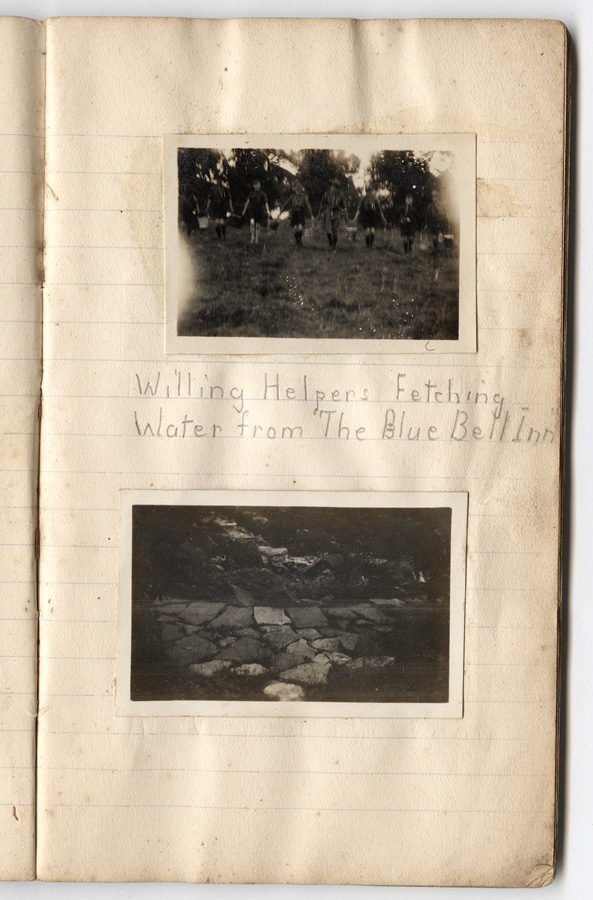 Willing Helpers Fetching
Water from The Blue Bell Inn